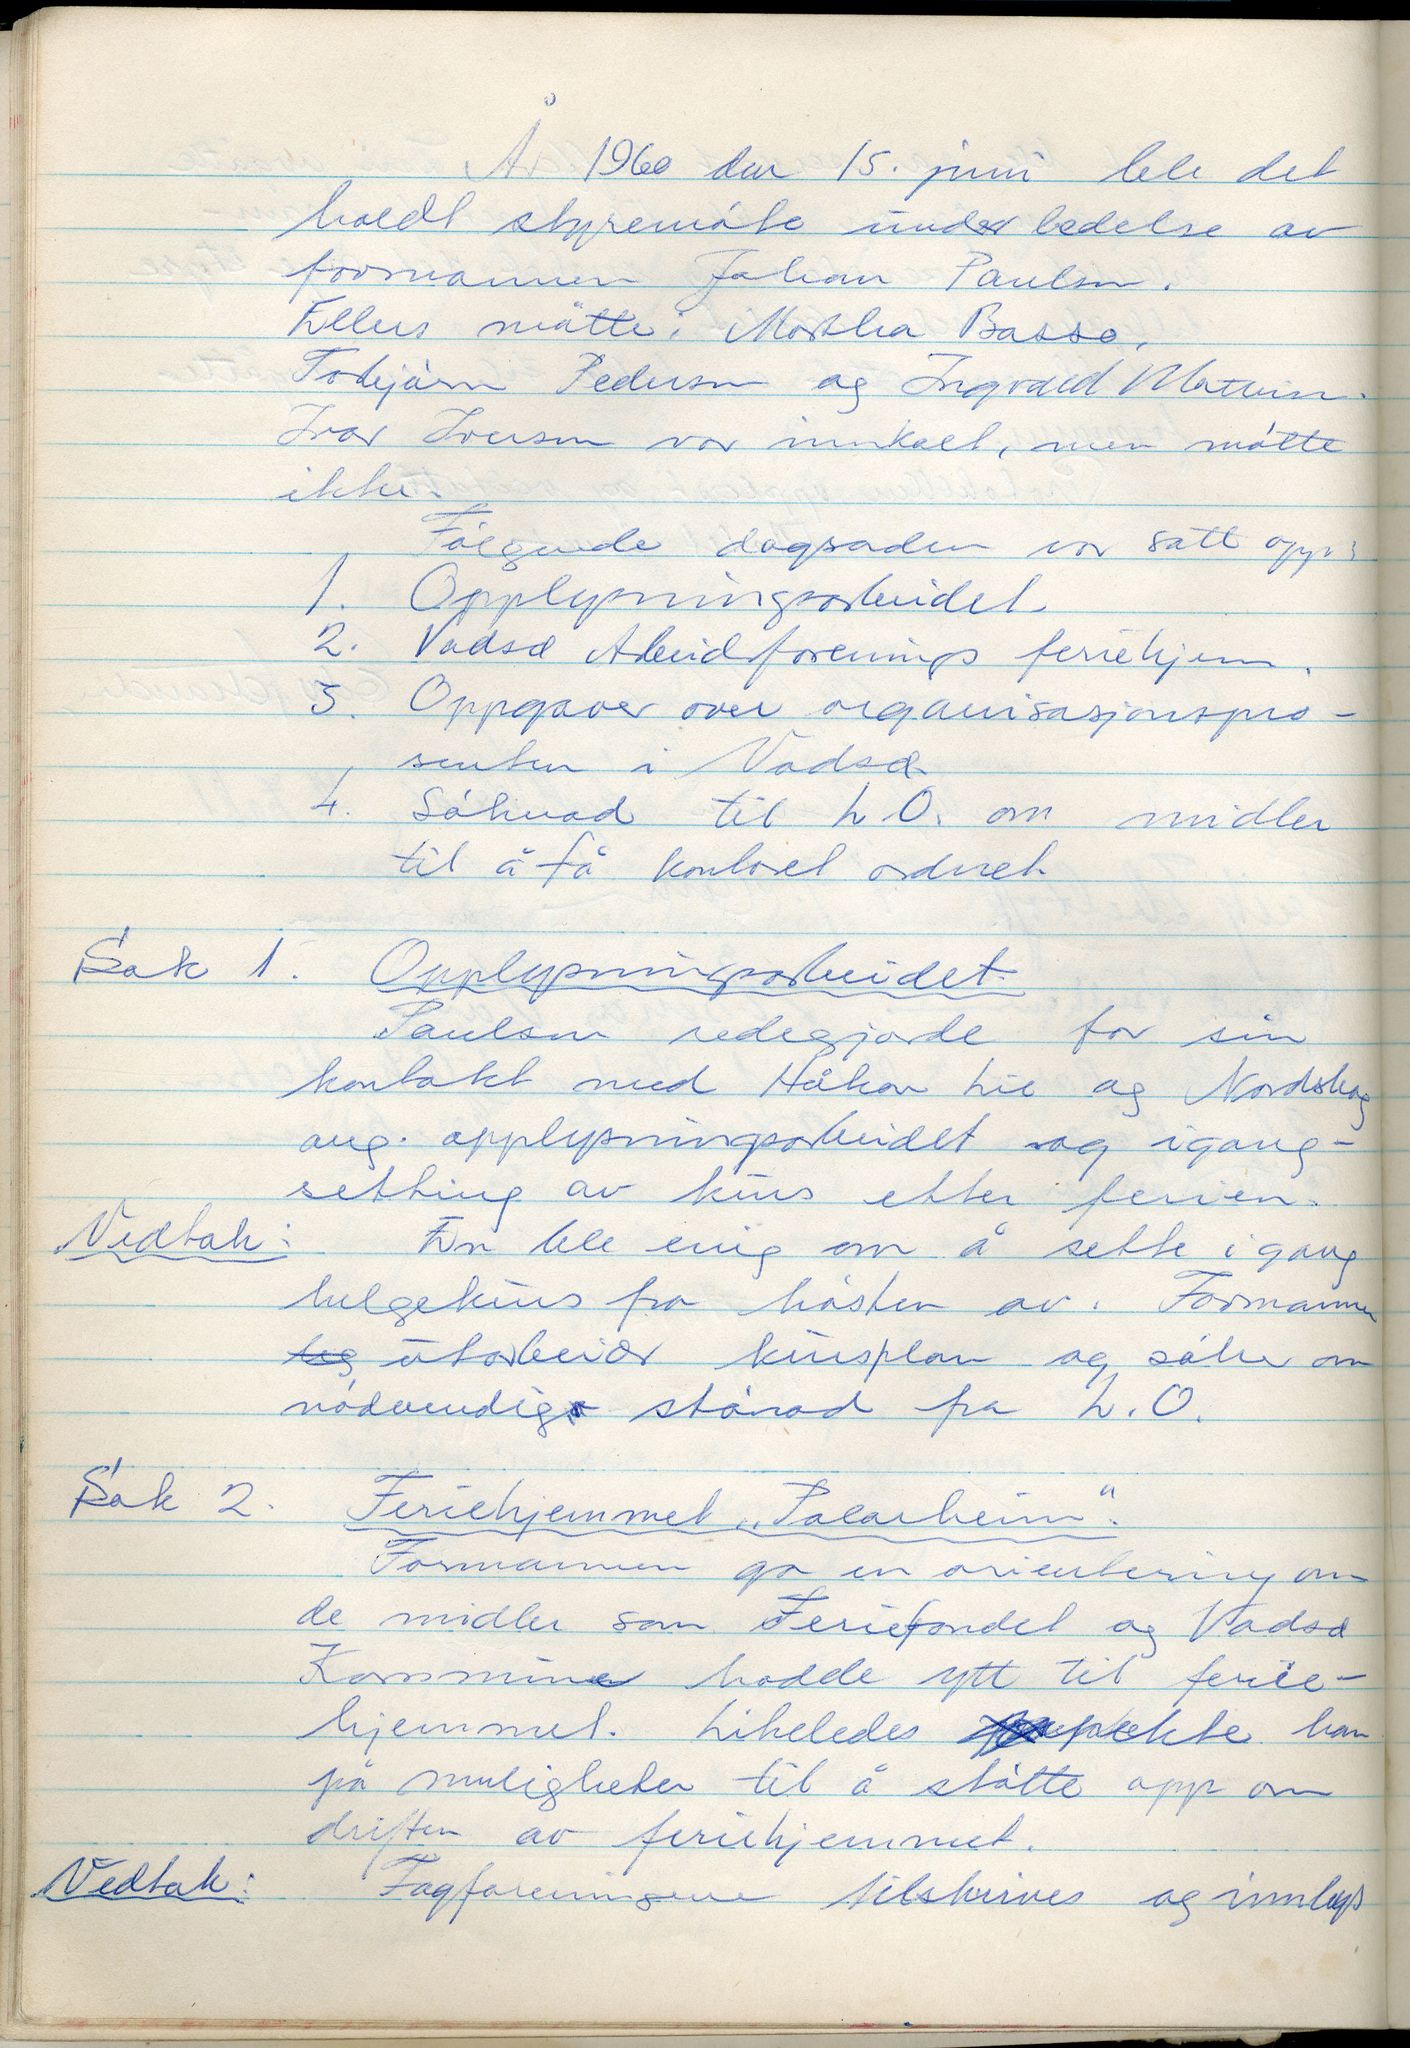 År 1960 den 15. juni ble det
holdt styremøte under ledelse av
formannen Johan Paulsen.
Ellers møtte: Martha Basso,
Torbjørn Pedersen og Ingvald Mathisen.
Ivar Iversen var innkalt, men møtte
ikke.
Følgende dagsorden var satt opp:
1. Opplysningsarbeidet
2. Vadsø Arbeidforenings feriehjem.
3. Oppgaver over organisasjonspro-
senten i Vadsø
4. Søknad til L.O. om midler
til å få kontoret ordnet
Sak 1. Opplysningsarbeidet
Paulsen redegjorde for sin
kontakt med Håkon Lie og Nordskog
ang. opplysningsarbeidet og igang-
setting av kurs etter ferien.
Vedtak: En ble enig om å sette igang
helgekurs fra høsten av. Formannen
utarbeider kursplan og søker om
nødvendig stønad fra L.O.
Sak 2. Feriehjemmet „Polarheim".
Formannen ga en orientering om
de midler som Feriefondet og Vadsø
Kommune hadde ytt til ferie-
hjemmet. Likeledes pekte han
på muligheter til å støtte opp om
driften av feriehjemmet.
Vedtak: Fagforeningene tilskrives og innlegg